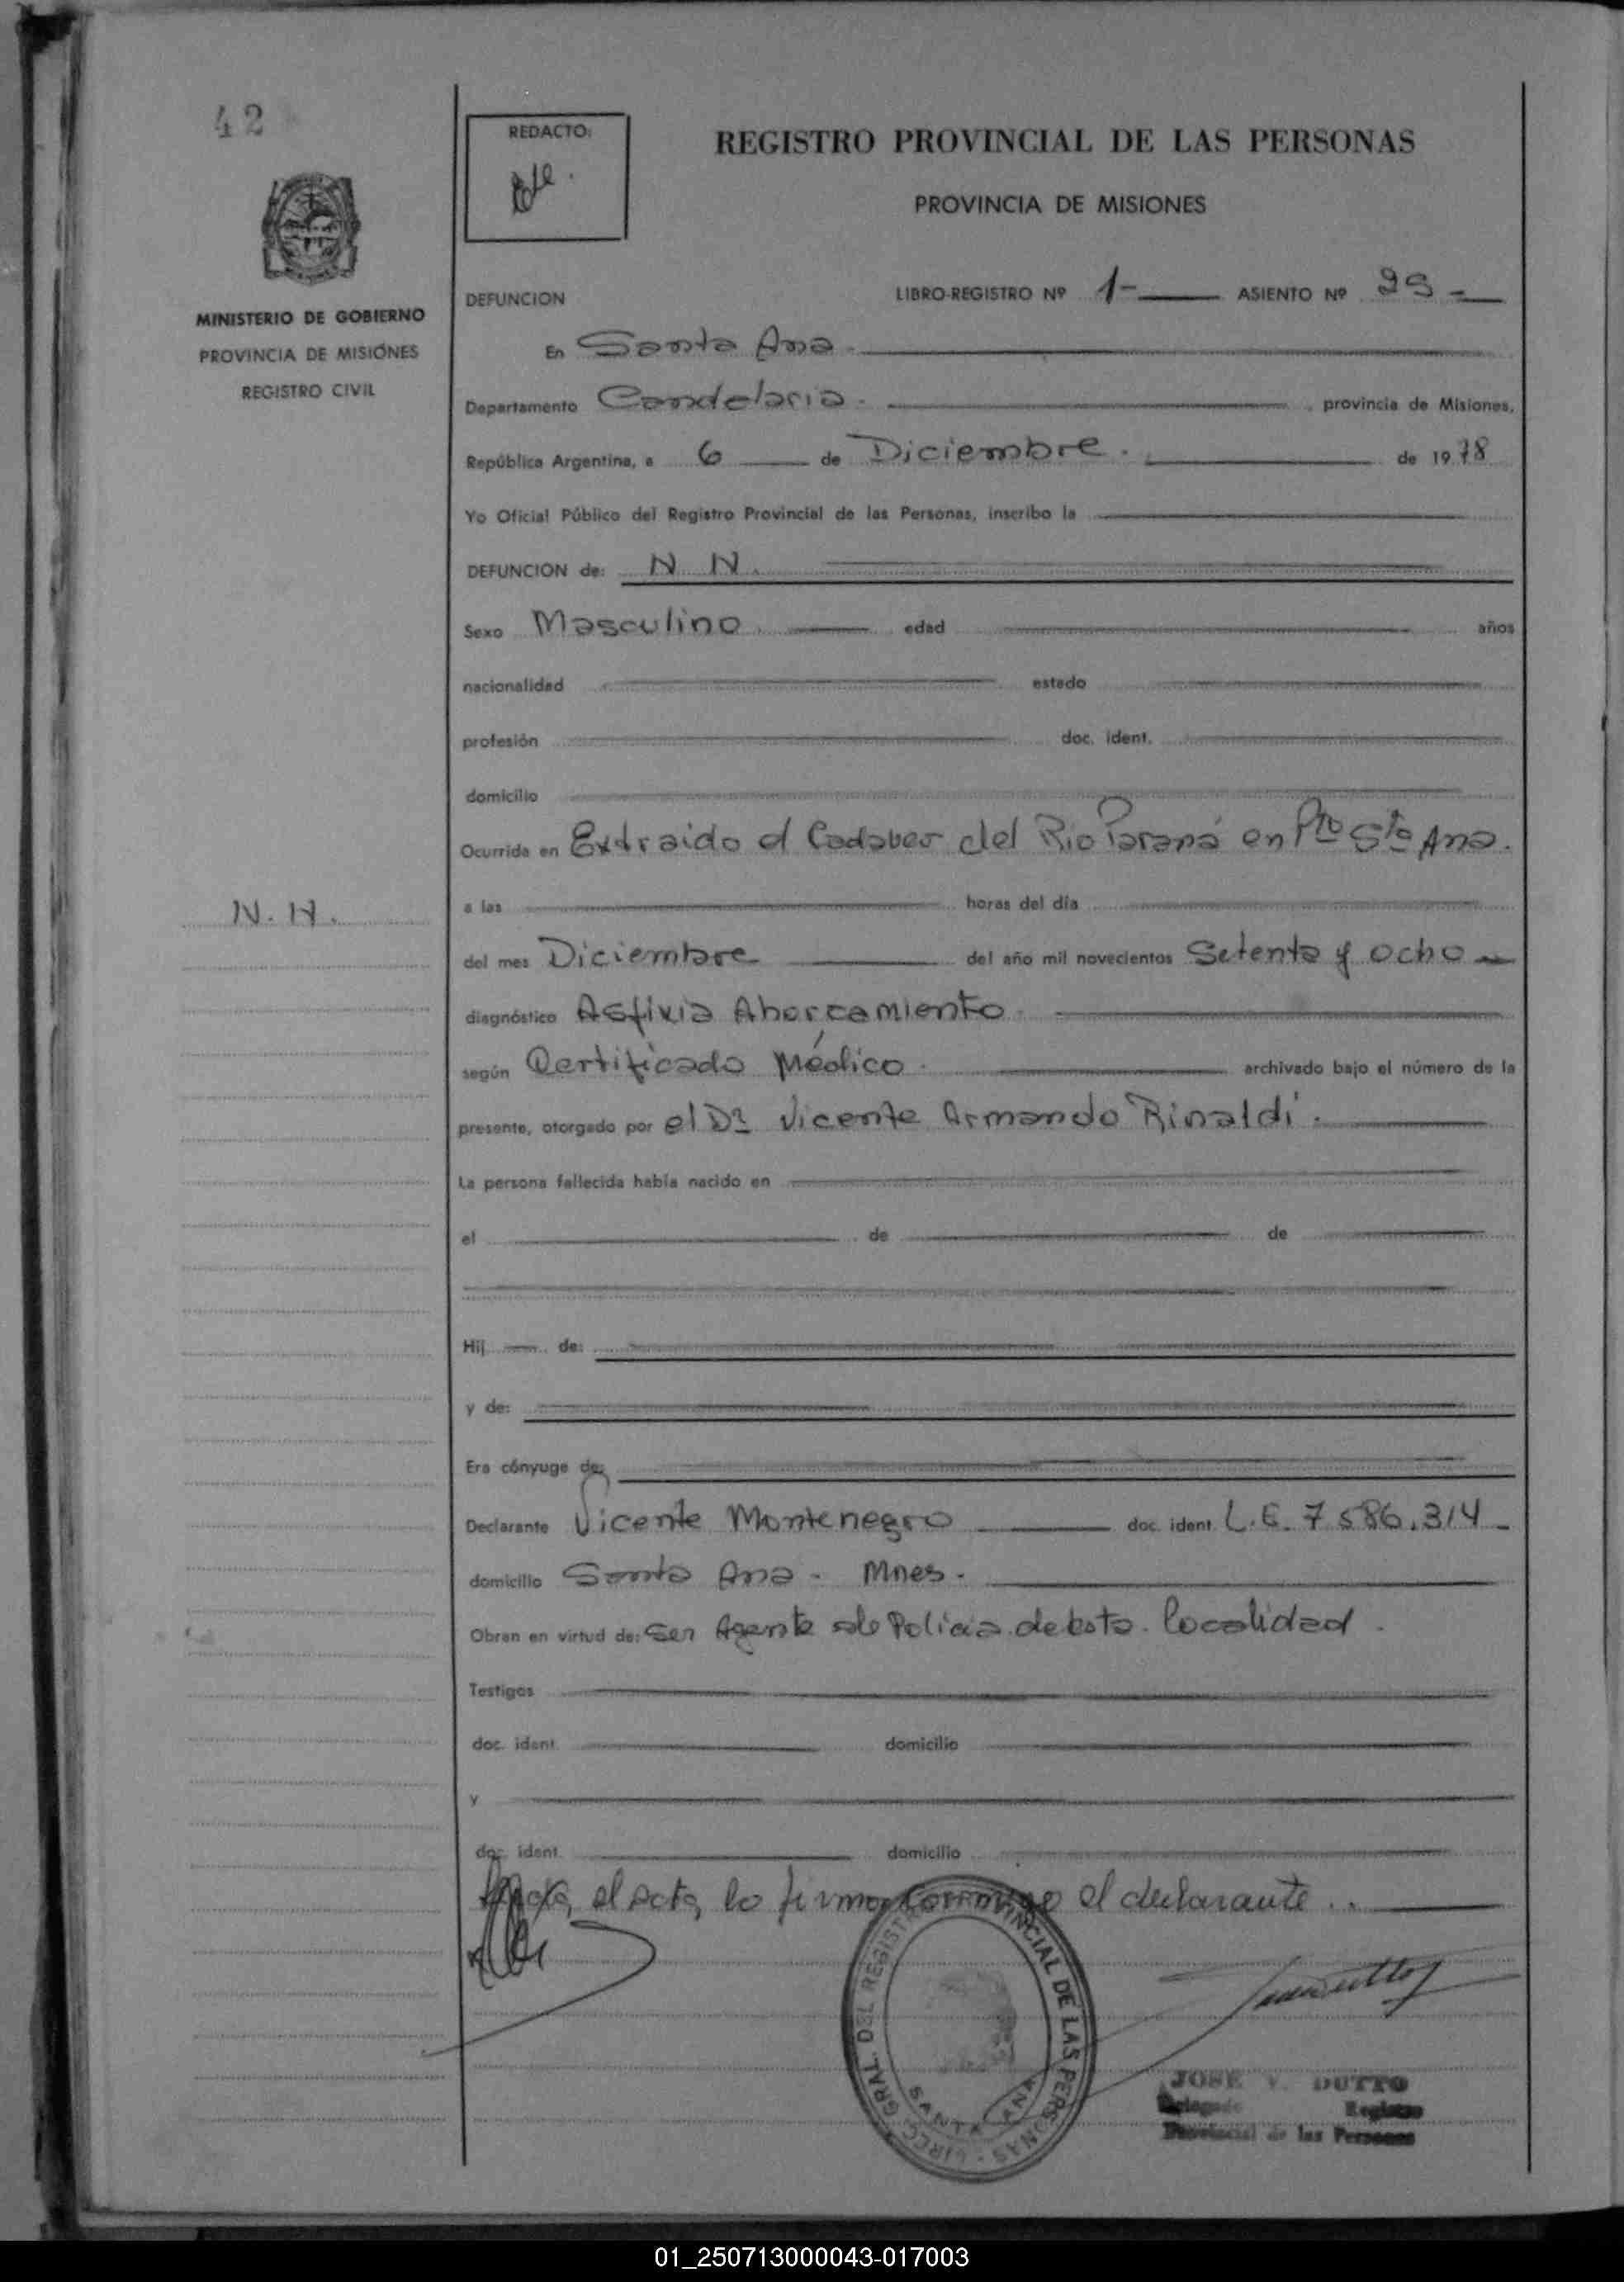 42
REDACTO:
REGISTRO PROVINCIAL DE LAS PERSONAS
PROVINCIA DE MISIONES
MINISTERIO DE GOBIERNO
PROVINCIA DE MISIONES
REGISTRO CIVIL
DEFUNCION LIBRO-REGISTRO Nº 1- ASIENTO Nº
En Santa Ana.
Departamento Candelaria. , provincia de Misiones,
República Argentina, a 6 de Diciembre. de 1978
Yo Oficial Público del Registro Provincial de las Personas, inscribo la
DEFUNCION de: N N.
Sexo Masculino edad años
nacionalidad estado
profesión doc. ident.
domicilio
Ocurrida en Extraido el Cadaver del Rio Paraná en Pto Sta Ana.
N. N.
a las horas del día
del mes Diciembre del año mil novecientos Setenta y ocho
diagnóstico Asfixia Ahorcamiento
según Certificado Médico. archivado bajo el número de la
presente, otorgado por el Dr Vicente Armando Rinaldi.
La persona fallecida había nacido en
el de de
Hij de:
y de:
Era cónyuge de:
Declarante Vicente Montenegro doc. ident. L.E. 7.586.314
domicilio Santa Ana - Mnes.
Obran en virtud de: Ser Agente de Policia de esta localidad.
Testigos
doc. ident. domicilio
y
doc. ident. domicilio
el acta, lo firma el declarante..
DIREC. GRAL. DEL REGISTRO PROVINCIAL DE LAS PERSONAS
SANTA ANA
JOSE V. DUTTO
Delegado Registro
Provincial de las Personas
01_250713000043-017003